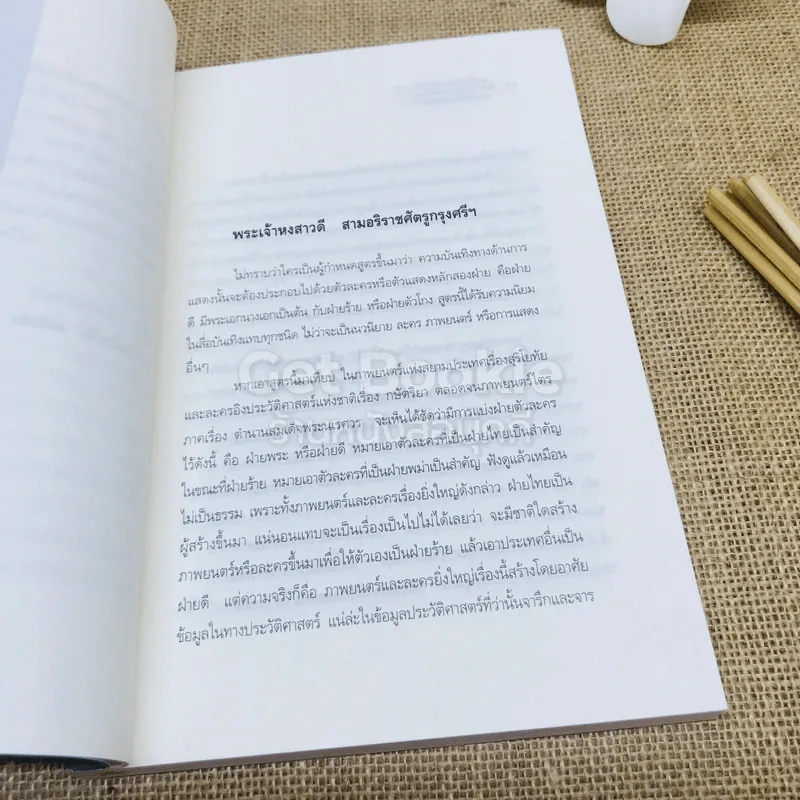 พระเจ้าหงสาวดี สามอริราชศัตรูกรุงศรีฯ
ไม่ทราบว่าใครเป็นผู้กำหนดสูตรขึ้นมาว่า ความบันเทิงทางด้านการ
แสดงนั้นจะต้องประกอบไปด้วยตัวละครหรือตัวแสดงหลักสองฝ่าย คือฝ่าย
ดี มีพระเอกนางเอกเป็นต้น กับฝ่ายร้าย หรือฝ่ายตัวโกง สูตรนี้ได้รับความนิยม
ในสื่อบันเทิงแทบทุกชนิด ไม่ว่าจะเป็นนวนิยาย ละคร ภาพยนตร์ หรือการแสดง
อื่นๆ
หากเอาสูตรนี้มาเทียบ ในภาพยนตร์แห่งสยามประเทศเรื่องสุริโยทัย
และละครอิงประวัติศาสตร์แห่งชาติเรื่อง กษัตริยา ตลอดจนภาพยนตร์ไตร
ภาคเรื่อง ตำนานสมเด็จพระนเรศวร จะเห็นได้ชัดว่ามีการแบ่งฝ่ายตัวละคร
ไว้ดังนี้ คือ ฝ่ายพระ หรือฝ่ายดี หมายเอาตัวละครที่เป็นฝ่ายไทยเป็นสำคัญ
ในขณะที่ฝ่ายร้าย หมายเอาตัวละครที่เป็นฝ่ายพม่าเป็นสำคัญ ฟังดูแล้วเหมือน
ไม่เป็นธรรม เพราะทั้งภาพยนตร์และละครเรื่องยิ่งใหญ่ดังกล่าว ฝ่ายไทยเป็น
ผู้สร้างขึ้นมา แน่นอนแทบจะเป็นเรื่องเป็นไปไม่ได้เลยว่า จะมีชาติใดสร้าง
ภาพยนตร์หรือละครขึ้นมาเพื่อให้ตัวเองเป็นฝ่ายร้าย แล้วเอาประเทศอื่นเป็น
ฝ่ายดี แต่ความจริงก็คือ ภาพยนตร์และละครยิ่งใหญ่เรื่องนี้สร้างโดยอาศัย
ข้อมูลในทางประวัติศาสตร์ แน่ล่ะในข้อมูลประวัติศาสตร์ที่ว่านั้นจารึกและจาร
Get Bookie